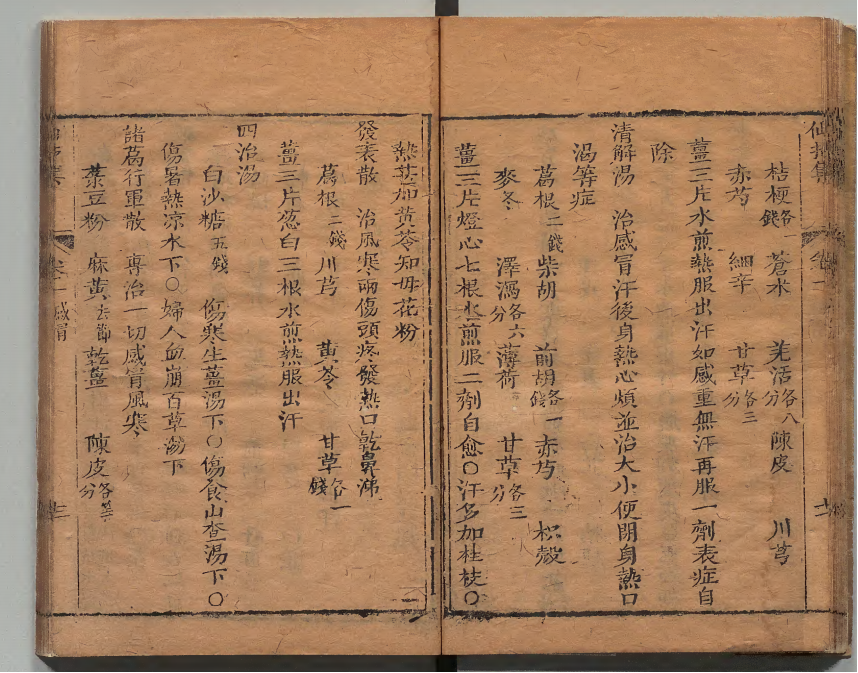 仙拈集 卷一
桔梗各一錢 蒼朮 羌活各八分 陳皮 川芎
赤芍 細辛 甘草各三分
薑三片水煎熱服出汗如感重無汗再服一劑表症自
除
清解湯 治感冒汗後身熱心煩並治大小便閉身熱口
渴等症
葛根二錢 柴胡 前胡各一錢 赤芍 枳殼
麥冬 澤瀉各六分 薄荷 甘草各三分
薑三片燈心七根水煎服二劑自愈〇汗多加桂枝〇
熱甚加黃芩知母花粉
發表散 治風寒兩傷頭疼發熱口乾鼻涕
葛根二錢 川芎 黃芩 甘草各一錢
薑三片葱白三根水煎熱服出汗
四治湯
白沙糖五錢 傷寒生薑湯下〇傷食山查湯下〇
傷暑熱凉水下〇婦人血崩百草湯下
諸葛行軍散 專治一切感冒風寒
菉豆粉 麻黃去節 乾薑 陳皮各等分
卷一 感冒